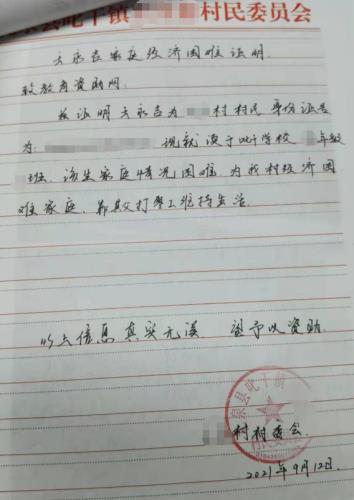 泉县叱干镇 村民委员会
方永吉家庭经济困难证明
致教育资助网:
兹证明方永吉为 村村民 身份证号
为: 现就读于叱干学校 年级
班. 该生家庭情况困难, 为我村经济困
难家庭, 靠其父打零工维持生活.
以上信息真实无误. 望予以资助.
泉县叱干镇
村村委会
2021年9月12日.